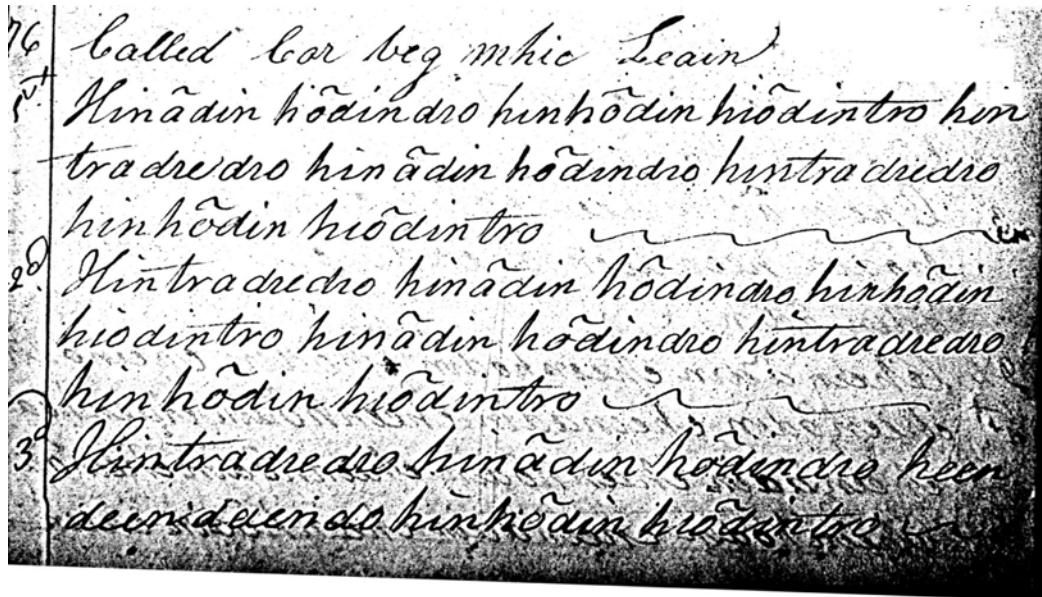 76 Called Cor beg mhic Leain
1st Hinādin hōdindro hinhōdin hiōdintro hin
tradredro hinādin hōdindro hintradredro
hinhōdin hiōdintro
2d Hintradredro hinādin hōdindro hinhōdin
hiodintro hinādin hōdindro hintradredro
hinhōdin hiōdintro
3d Hintradredro hinādin hōdindro heen
hinhōdin hiōdintro